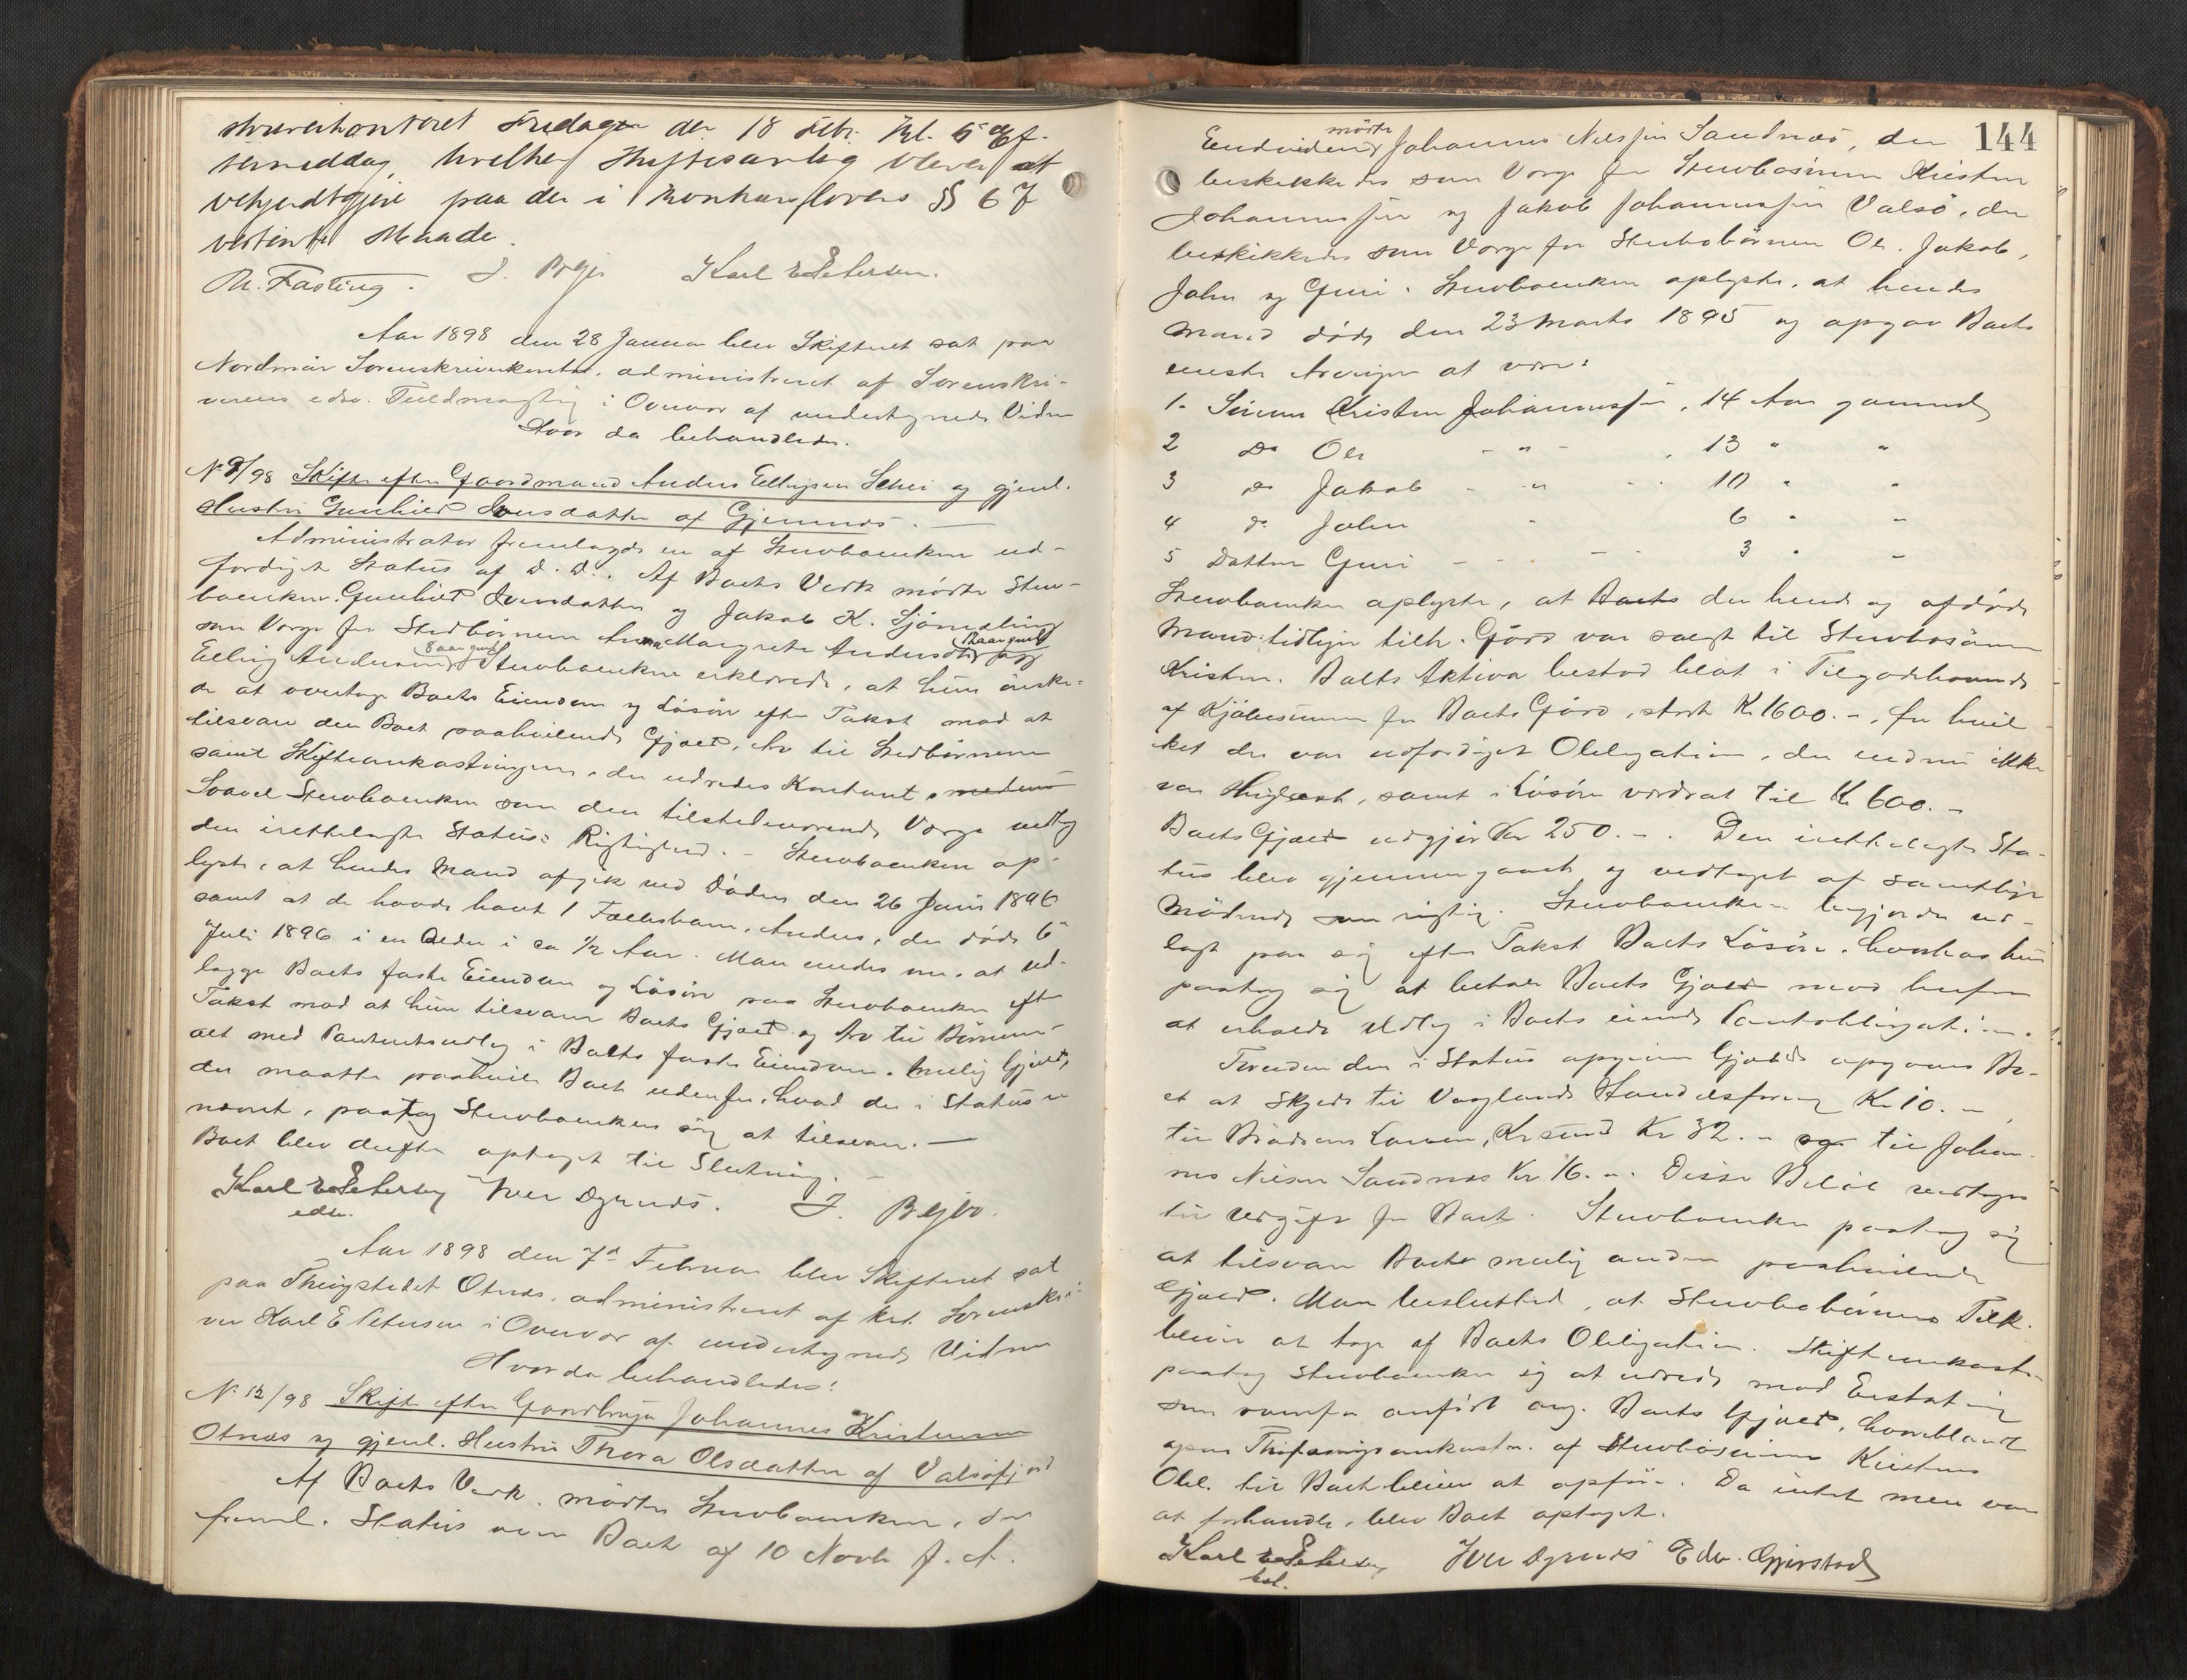 skriverkontoret Fredagen den 18 Febr. Kl. 5 Ef-
termiddag, hvilken Skiftesamling bliver at
bekjendtgjøre paa den i Konkurslovens § 67
bestemte Maade.
M. Fasting. J. Karl E Petersen.
Aar 1898 den 28 Januar blev Skifteret sat paa
Nordmør Sorenskriverkontor, administreret af Sorenskri-
verens edsv. Fuldmægtig i Overvær af undertegnede Vidner
Hvor da behandledes.
N. 9/98 Skifte efter Gaardmand Anders Ellingsen Schei og gjenl.
Hustru Gunhild Iversdatter af Gjemnæs. —
Administrator fremlagde en af Stervboenken ud-
færdiget Status af D. D. Af Boets Vedk. mødte Sterv-
boenken Gunhild Iversdatter og Jakob K.
som Verge for Stedbørnene Anna Margrete Andersdtr 12 aar gml og
Elling Andersen 8 aar gml Stervboenken erklærede, at hun ønske-
de at overtage Boets Eiendom og Løsøre efter Takst mod at
tilsvare den Boet paahvilende Gjæld, Arv til Stedbørnene
samt Skifteomkostningerne, der udredes kontant, medens
Saavel Stervboenken som den tilstedeværende Verge vedtog
den irettelagte Status's Rigtighed. - Stervboenken op-
lyste, at hendes Mand afgik ved Døden den 26 Juni 1896
samt at de havde havt 1 Fællesbarn, Anders, der døde 6
Juli 1896 i en Alder i ca ½ Aar. Man enedes om at ud-
lægge Boets faste Eiendom og Løsøre paa Stervboenken efter
Takst mod at hun tilsvarer Boets Gjæld og Arv til Børnene
alt med Panteretsudlæg i Boets faste Eiendom. Mulig Gjæld,
der maatte paahvile Boet udenfor, hvad der i Status er
nævnt, paatog Stervboenken sig at tilsvare. —
Boet blev derefter optaget til Slutning. —
Karl E Petersen Iver Øgnæs. J.
edsv.
Aar 1898 den 7d Februar blev Skifteret sat
paa Thingstedet Otnæs, administreret af kst. Sorenskri-
ver Karl E Petersen i Overvær af undertegnede Vidner
Hvor da behandledes:
N. 12/98 Skifte efter Gaardbruger Johannes Kristensen
Otnæs og gjenl. Hustru Thora Olsdatter af Valsøfjord
Af Boets Vedk. mødte Stervboenken, der
freml. Status over Boet af 10 Novb f. A.
144
Endvidere mødte Johannes Nilssen Sandnæs, der
beskikkedes som Verge for Stervbosønnen Kristen
Johannessen og Jakob Johannessen Valsø, der
beskikkedes som Verge for Stervbobørnene Ole, Jakob,
John og Guri. Stervboenken oplyste, at hendes
Mand døde den 23 Marts 1895 og opgav Boets
eneste Arvinger at være:
1. Sønnen Kristen Johannessen, 14 Aar gammel
2 Do Ole - " - , 13 " "
3 Do Jakob - " - 10 " "
4 Do John " 6 " "
5 Datter Guri - - 3 " "
Stervboenken oplyste, at Boets den hende og afdøde
Mand tidligere tilh. Gaard var solgt til Stervbosønnen
Kristen. Boets Aktiva bestod blot i Tilgodehavende
af Kjøbesummen for Boets Gaard, stort Kr 1600.-, for hvil-
ket der var udfærdiget Obligation, der endnu ikke
var thinglæst, samt i Løsøre vurderet til Kr 600.-
Boets Gjæld udgjør Kr 250.-. Den irettelagte Sta-
tus blev gjennemgaaet og vedtaget af samtlige
Mødende som rigtig. Stervboenken begjærede ud-
lagt paa sig efter Takst Boets Løsøre, hvorhos hun
paatog sig at betale Boets Gjæld mod herfor
at erholde Udlæg i Boets eiende Panteobligation.
Foruden den i Status opgivne Gjæld opgaves Bo-
et at skylde til Vaaglands Handelsforening Kr 10.-
til Brødrene, Krsund Kr 32.- og til Johan-
nes Nilsen Sandnæs Kr 16.-. Disse Beløb vedtoges
til Udgift for Boet. Stervboenken paatog sig
at tilsvare Boets mulig anden paahvilende
Gjæld. Man besluttede, at Stervbobørnenes Tilk.
bliver at tage af Boets Obligation. Skifteomkostn.
paatog Stervboenken sig at udrede mod Erstatning
som ovenfor anført ang. Boets Gjæld, hvoriblandt
ogsaa Thinglæsningsomkostn. af Stervbosønnen Kristens
Obl. til Boet bliver at opføre. Da intet mere var
at forhandle, blev Boet optaget.
Karl E Petersen Iver Øgnæs Edv. Gjerstad
kst.